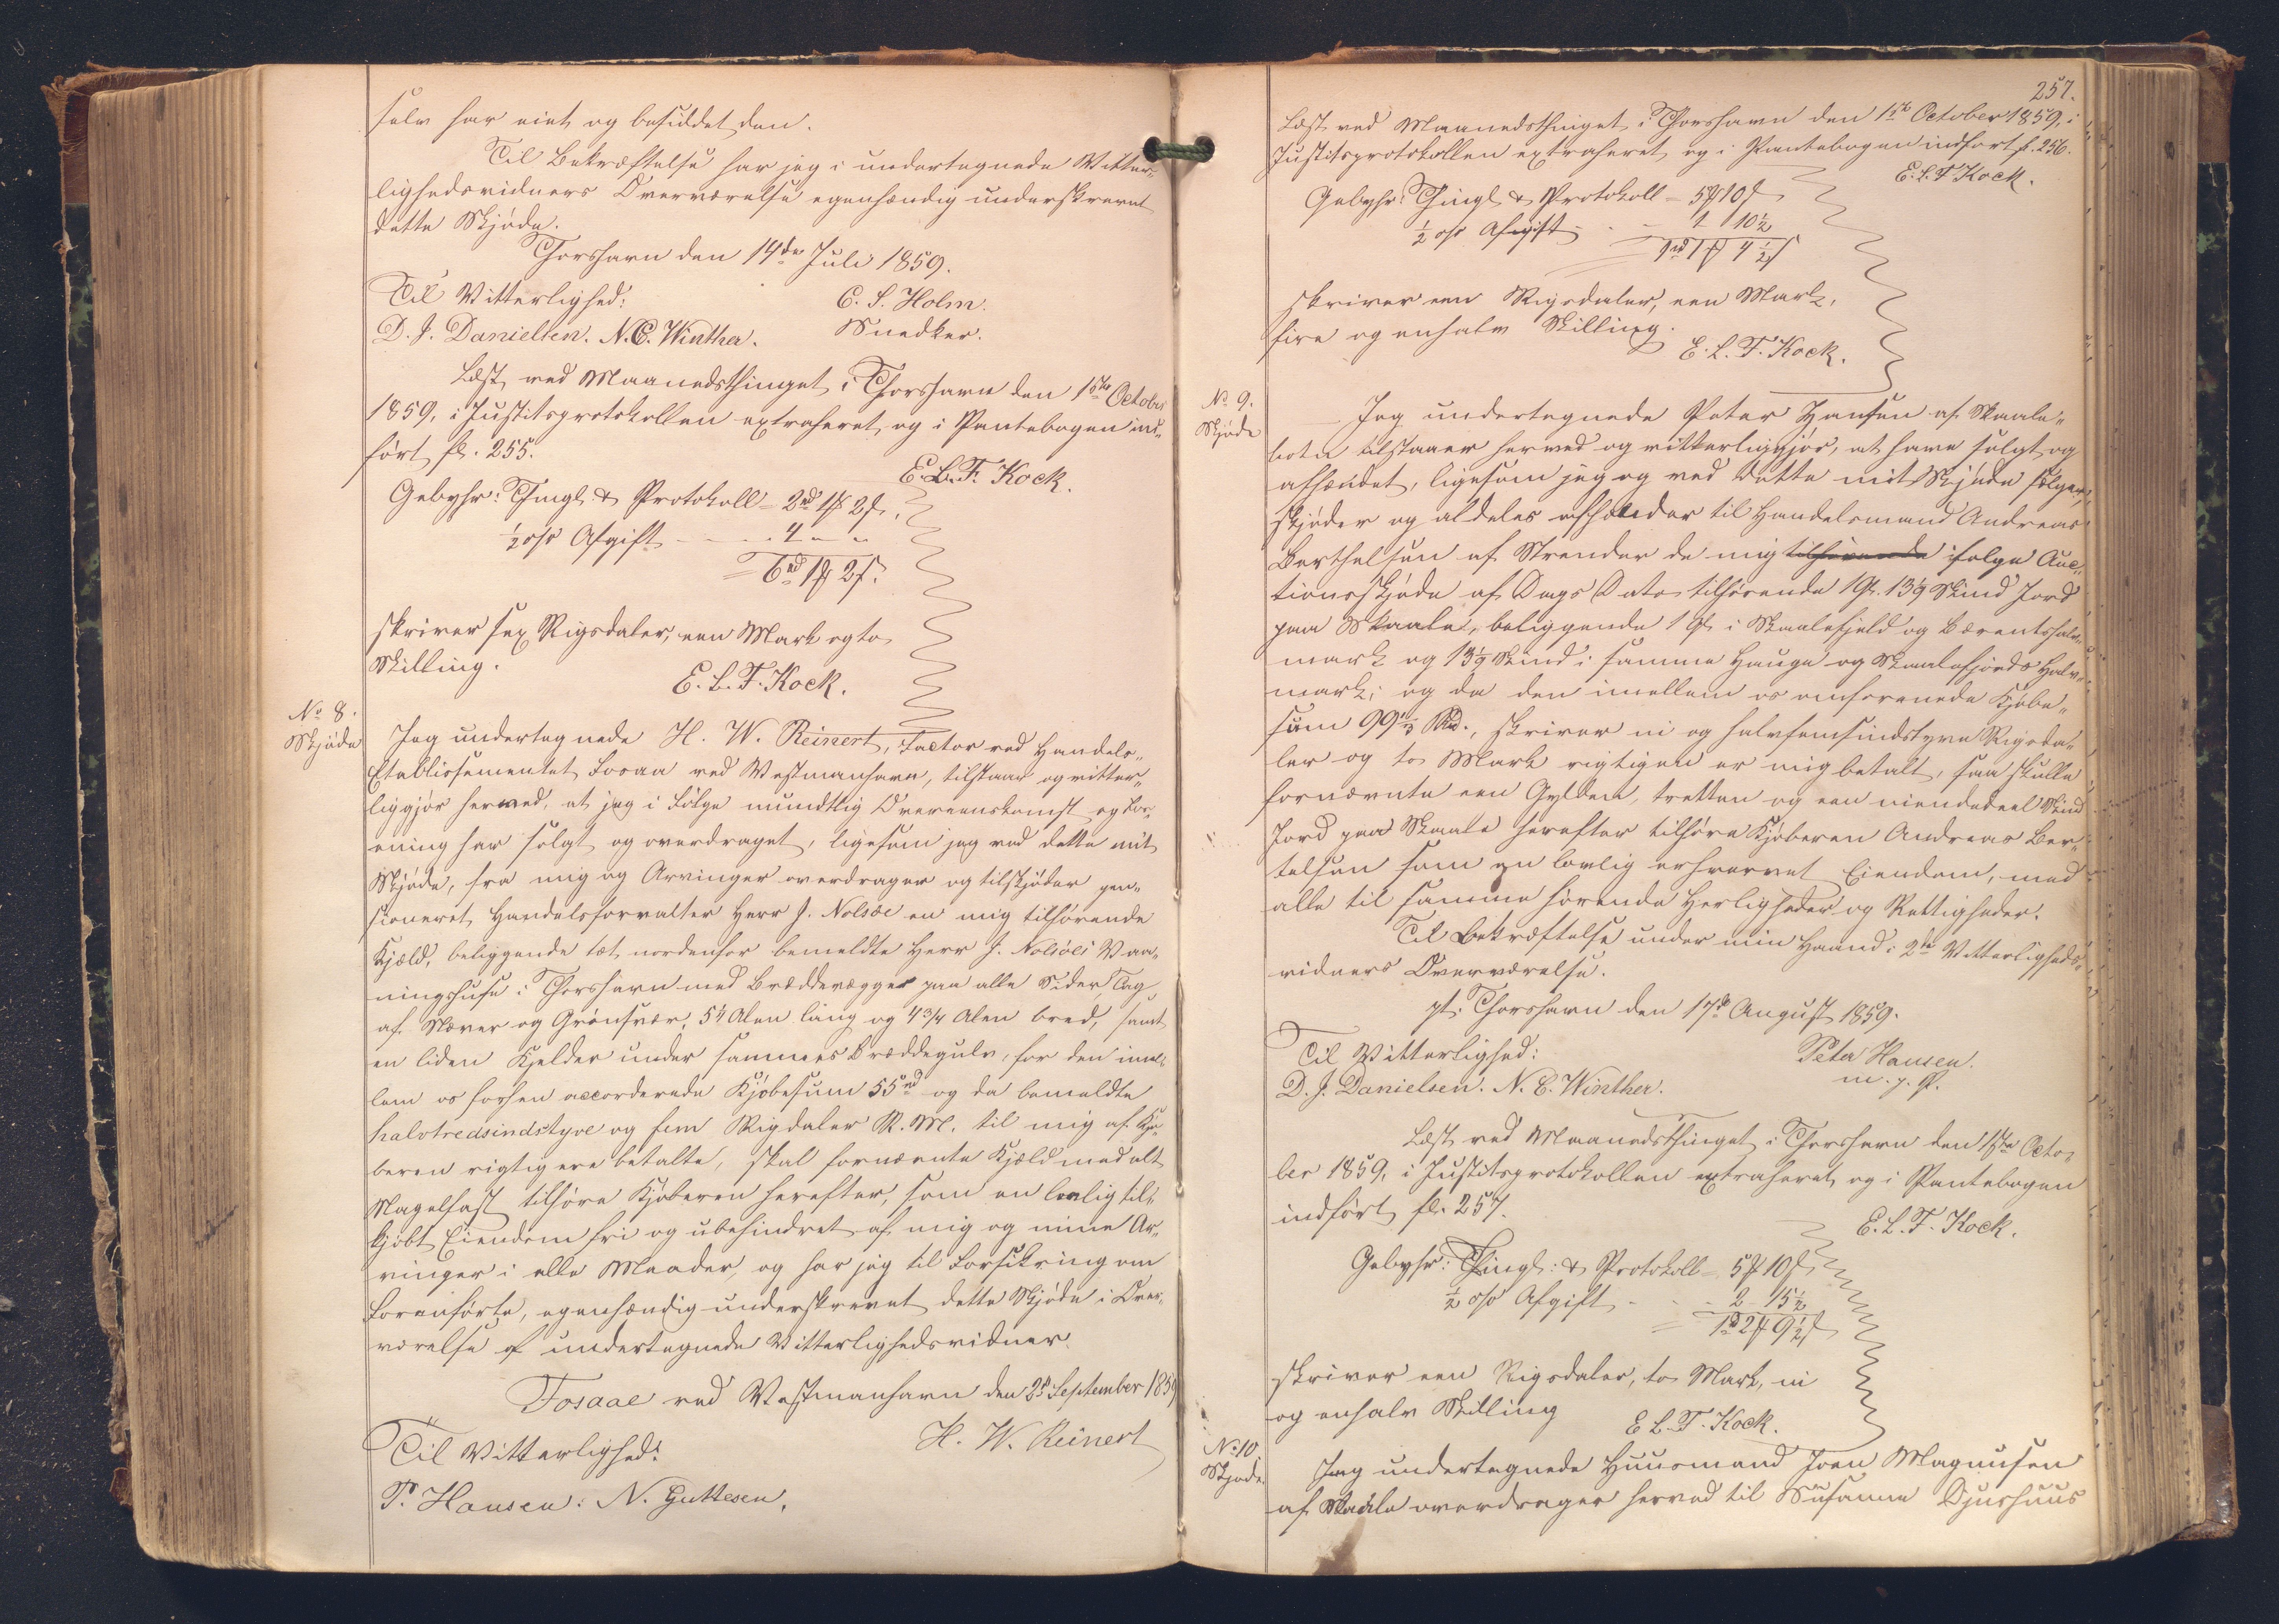 selv har eiet og besiddet den.
Til Bekræftelse har jeg i undertegnede Vitter-
lighedsvidners Overværelse egenhændig underskrevet
dette Skjøde.
Thorshavn den 14de Juli 1859.
Til Vitterlighed: C. S. Holm.
D. J. Danielsen. N. C. Winther. Snedker.
Læst ved Maanedsthinget i Thorshavn den 1ste October
1859, i Justitsprotokollen extraheret, og i Pantebogen ind-
ført fl. 255.
E. L. F. Kock.
Gebyhr: Thingl. & Protokoll = 2rd 1# 2ß.
½ o/o Afgift - - - 4 " "
= 6rd 1# 2ß.
skriver sex Rigsdaler, een Mark og to
Skilling.
E. L. F. Kock.
No 8.
Skjøde
Jeg undertegnede H. W. Reinert, Factor ved Handels-
Etablissementet Fosaa ved Vestmanhavn, tilstaar og vitter-
liggjør herved, at jeg i Følge mundtlig Overeenskomst og For-
ening har solgt og overdraget, ligesom jeg ved dette mit
Skjøde, fra mig og Arvinger overdrager og tilskjøder pen-
sioneret Handelsforvalter Herr J. Nolsøe en mig tilhørende
Kjæld, beliggende tæt nordenfor bemeldte Herr J. Nolsöes Vaa-
ningshuse i Thorshavn med Bræddevægge paa alle Sider, Tag
af Næver og Grønsvær, 5½ Alen lang og 4¾ Alen bred, samt
en liden Kjelder under sammes Bræddegulv, for den imel-
lem os forhen accorderede Kjøbesum 55rd og da bemeldte
halvtredsindstyve og fem Rigdaler R. M. til mig af Kjø-
beren rigtig ere betalte, skal fornævnte Kjæld med alt
Nagelfast tilhøre Kjøberen herefter, som en lovlig til-
kjøbt Eiendom fri og ubehindret af mig og mine Ar-
vinger i alle Maader, og har jeg til Forsikring om
Foranførte, egenhændig underskrevet dette Skjøde i Over-
værelse af undertegnede Vitterlighedsvidner.
Fosaae ved Vestmanhavn den 28 September 1859
Til Vitterlighed: H. W. Reinert
P. Hansen: N. Guttesen.
257.
Læst ved Maanedsthinget i Thorshavn den 1ste October 1859, i
Justitsprotokollen extraheret, og i Pantebogen indført fl. 256.
E. L. F. Kock.
Gebyhr: Thingl. & Protokoll = 5# 10ß
½ o/o Afgift - - 1 10½
= 1rd 1# 4½ß
skriver een Rigsdaler, een Mark,
fire og enhalv Skilling.
E. L. F. Kock.
No 9.
Skjøde
Jeg undertegnede Peter Hansen af Skaale-
botn tilstaaer herved og vitterliggjør, at have solgt og
afhændet, ligesom jeg og ved dette mit Skjøde sælger,
skjøder og aldeles afhænder til Handelsmand Andreas
Berthelsen af Strender de mig tilhørende ifølge Auc-
tionsskjøde af Dags Dato tilhørende 1 Gl. 13⅑ Skind Jord
paa Skaale, beliggende 1 Gl. i Skaalefjeld og Berentshalv-
mark og 13⅑ Skind i samme Hauge og Skaalefjords Halv-
mark; og da den imellem os omforenede Kjøbe-
sum 99⅓ Rd., skriver ni og halvfemsindstyve Rigsda-
ler og to Mark rigtigen er mig betalt, saa skulle
fornævnte een Gylden, tretten og een niendedeel Skind
Jord paa Skaale herefter tilhøre Kjøberen Andreas Ber-
telsen som en lovlig erhvervet Eiendom, med
alle til samme hørende Herligheder og Rettigheder.
Til Bekræftelse under min Haand i 2de Vitterligheds-
vidners Overværelse.
pt. Thorshavn den 17de August 1859.
Til Vitterlighed: Peter Hansen.
D. J. Danielsen. N. C. Winther. m. p. P.
Læst ved Maanedsthinget i Thorshavn den 1ste Octo-
ber 1859, i Justitsprotokollen extraheret, og i Pantebogen
indført fl. 257.
E. L. F. Kock.
Gebyhr: Thingl: & Protokoll = 5# 10ß
½ o/o Afgift - - 2 15½
= 1rd 2# 9½ß
skriver een Rigsdaler, to Mark, ni
og enhalv Skilling
E. L. F. Kock.
No 10
Skjøde.
Jeg undertegnede Huusmand Joen Magnussen
af Skaale overdrager herved til Susanne Djurhuus